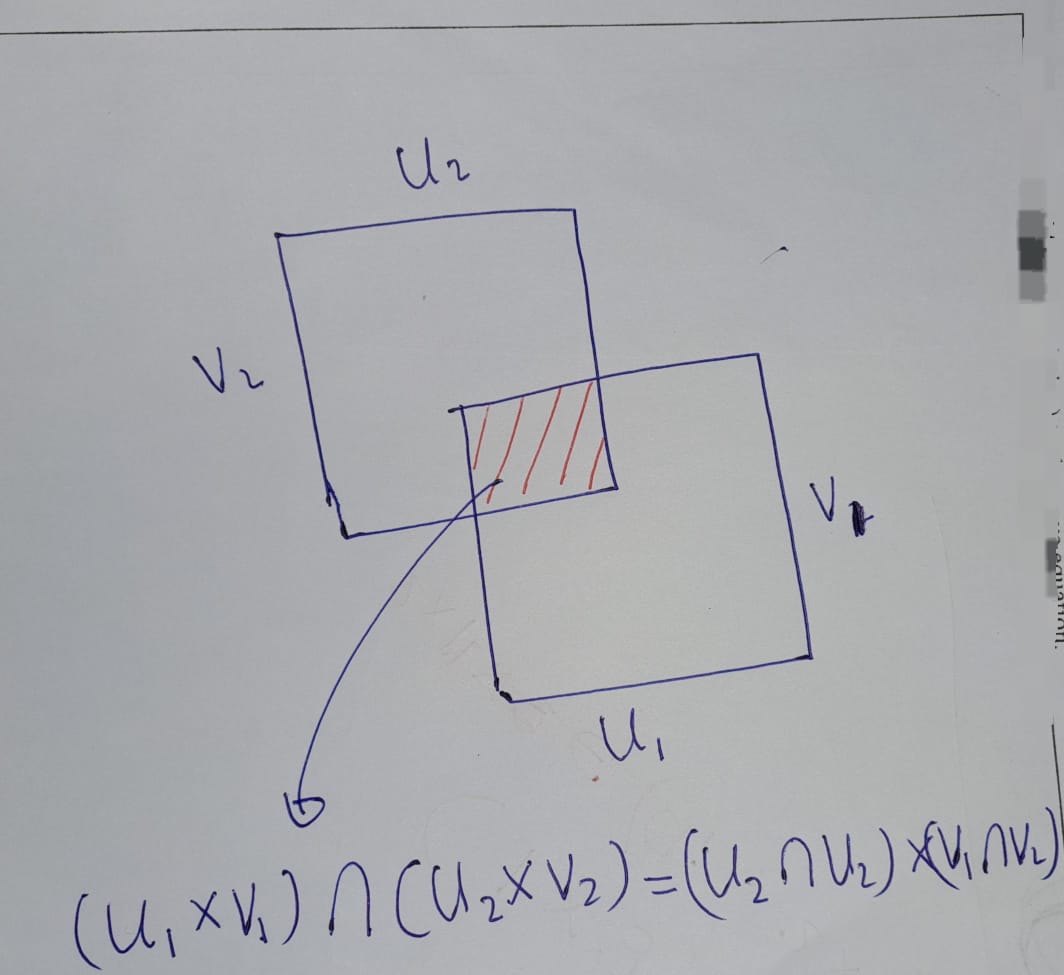 U₂
V₂
V₁
U₁
(U₁ × V₁) ∩ (U₂ × V₂) = (U₂ ∩ U₂) × (V₁ ∩ V₂)